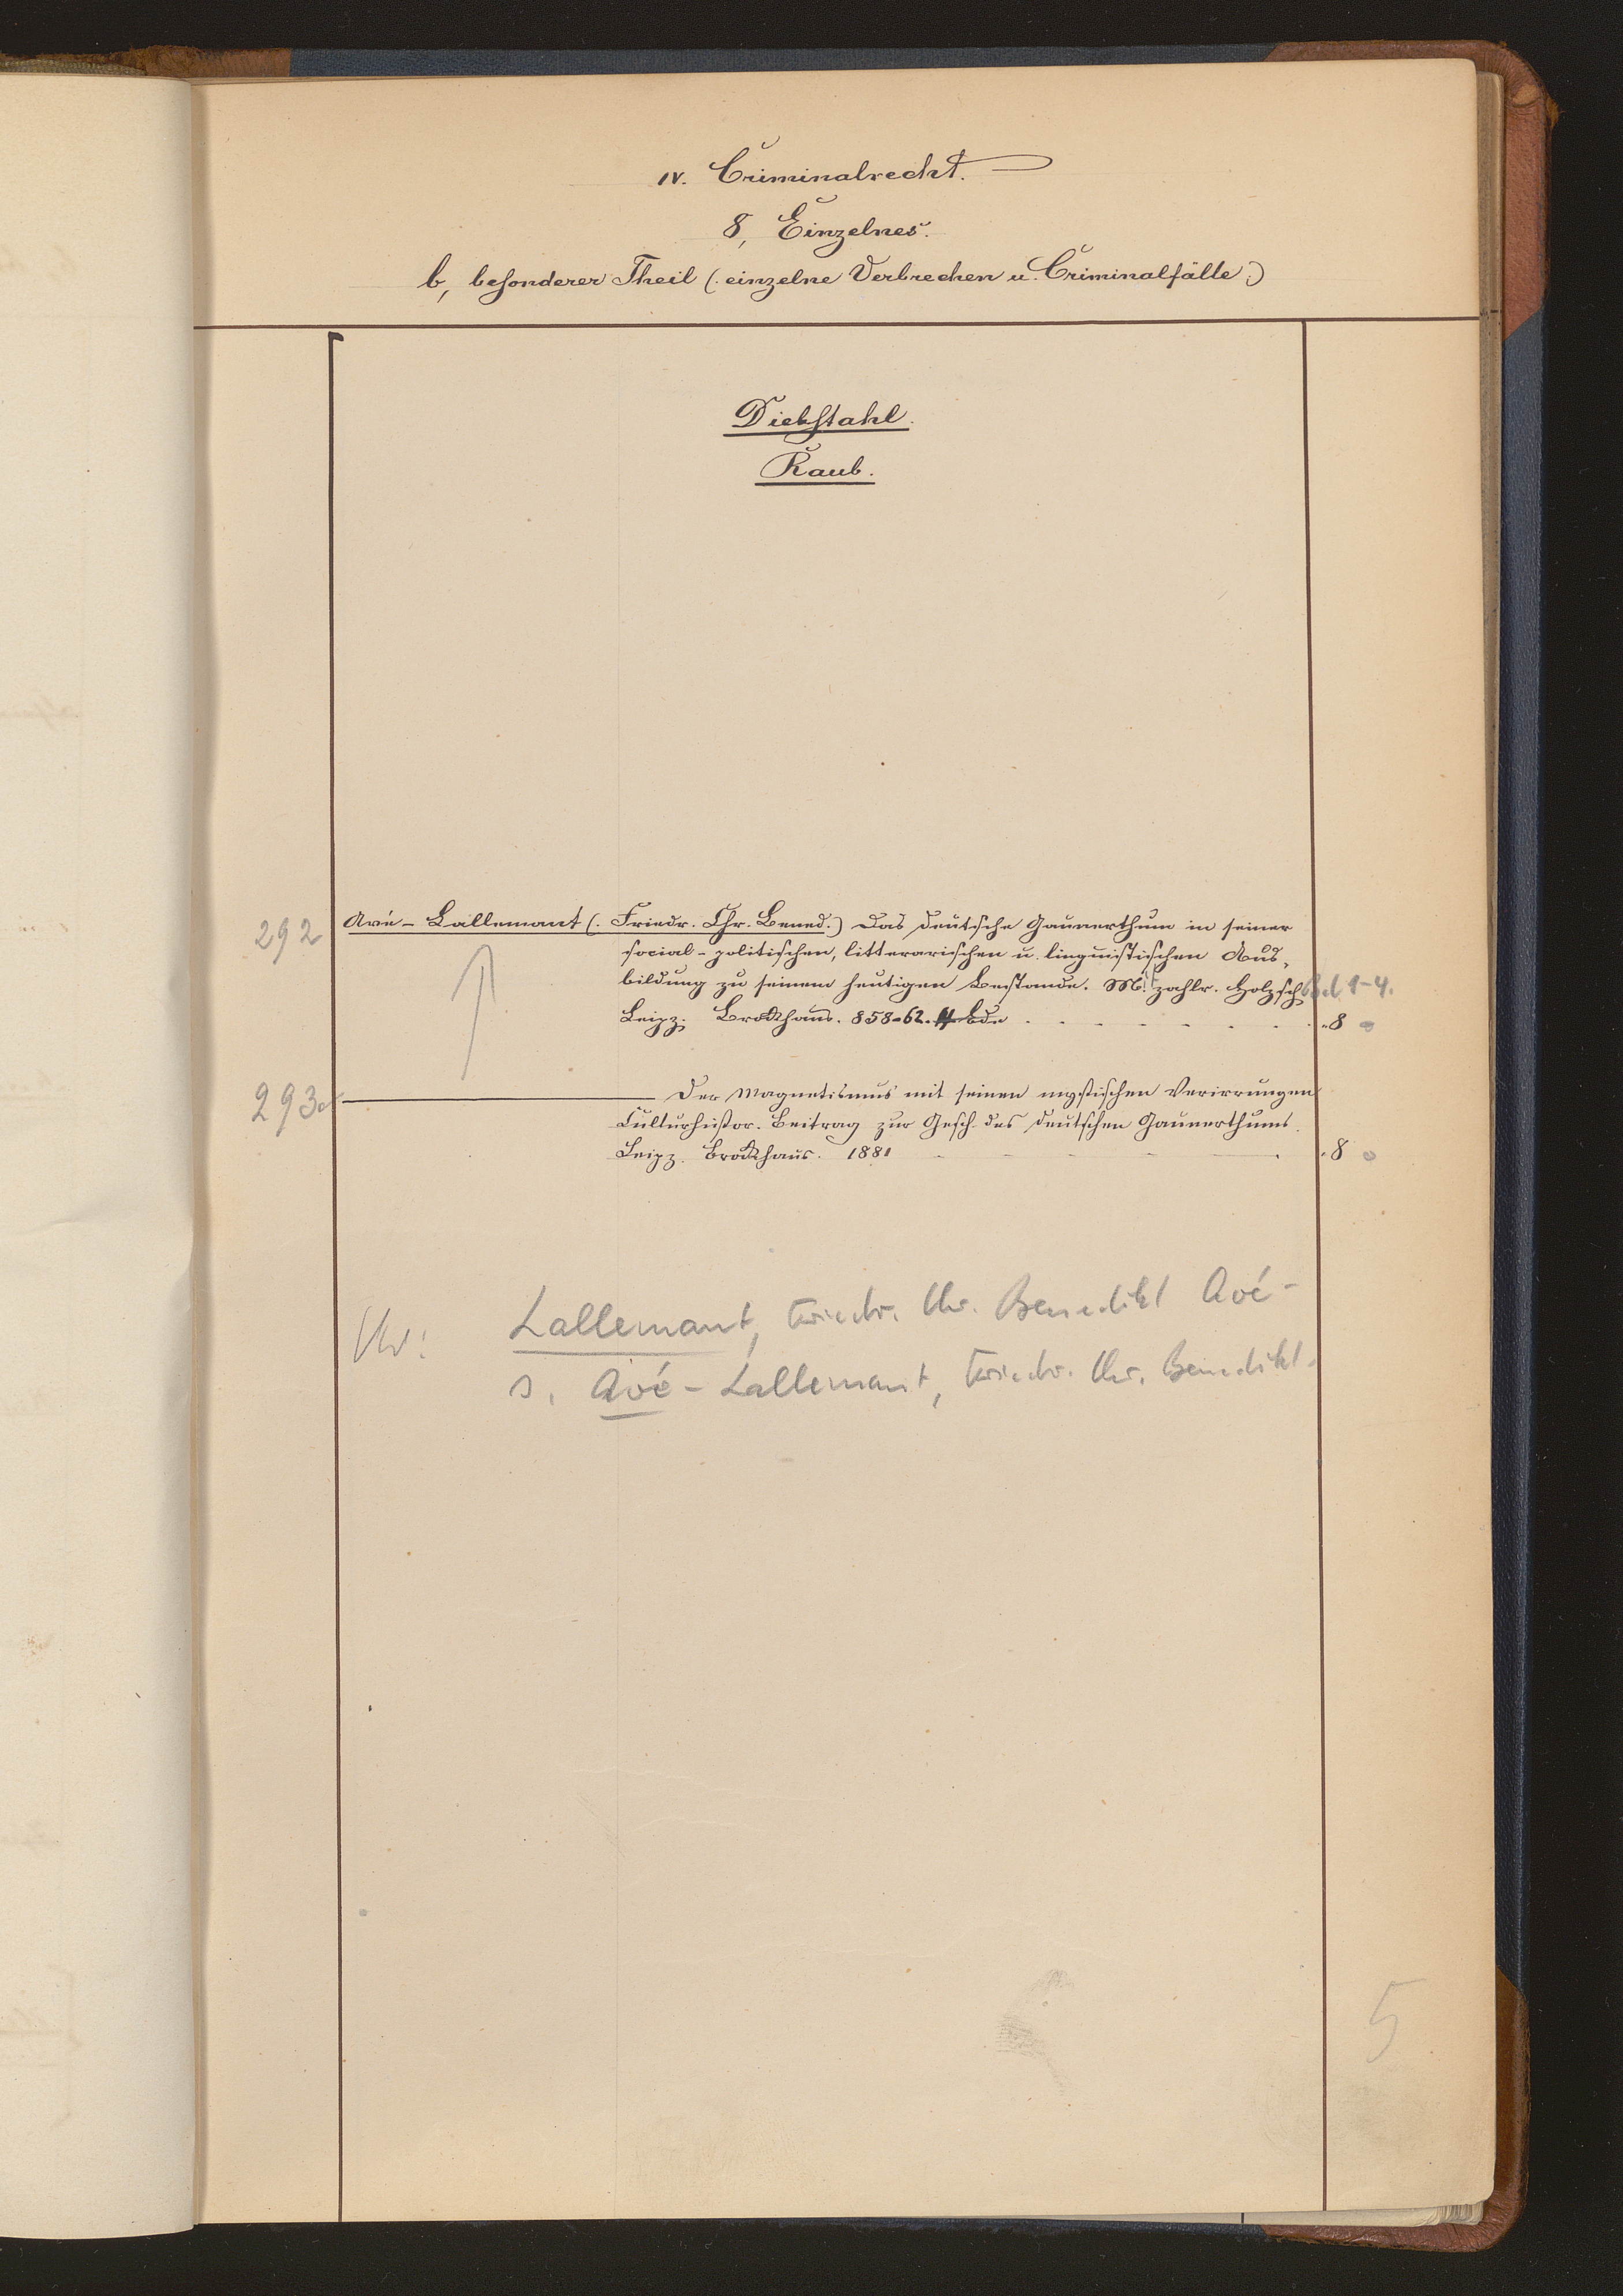 IV. Criminalrecht.
8, Einzelnes.
b, besonderer Theil (: einzelne Verbrechen u. Criminalfälle :)
Diebstahl.
Raub.
292 Avé-Lallemant (: Friedr. Chr. Bened.) Das deutsche Gaunerthum in seiner
social-politischen, litterarischen u. linguistischen Aus-
bildung zu seinem heutigen Bestande. Mit zahlr. Holzsch. Bd. 1-4.
Leipz. Brockhaus. 858-62. 4 Bde 8
293 Der Magnetismus mit seinen mystischen Verirrungen
Culturhistor. Beitrag zur Gesch. des deutschen Gaunerthums.
Leipz. Brockhaus. 1881 8
Lallemant, Friedr. Chr. Benedikt Avé-
s. Avé-Lallemant, Friedr. Chr. Benedikt.
5